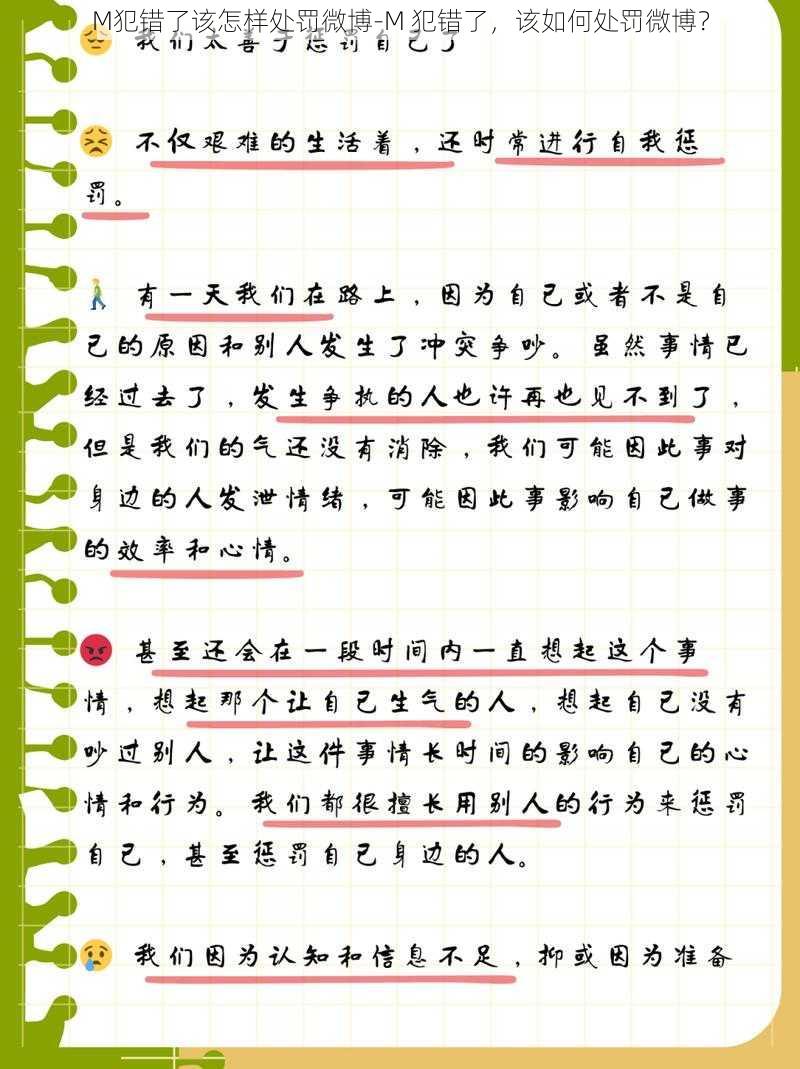 M犯错了该怎样处罚微博-M 犯错了，该如何处罚微博？
我们太善于惩罚自己了
不仅艰难的生活着，还时常进行自我惩
罚。
有一天我们在路上，因为自己或者不是自
己的原因和别人发生了冲突争吵。虽然事情已
经过去了，发生争执的人也许再也见不到了，
但是我们的气还没有消除，我们可能因此事对
身边的人发泄情绪，可能因此事影响自己做事
的效率和心情。
甚至还会在一段时间内一直想起这个事
情，想起那个让自己生气的人，想起自己没有
吵过别人，让这件事情长时间的影响自己的心
情和行为。我们都很擅长用别人的行为来惩罚
自己，甚至惩罚自己身边的人。
我们因为认知和信息不足，抑或因为准备